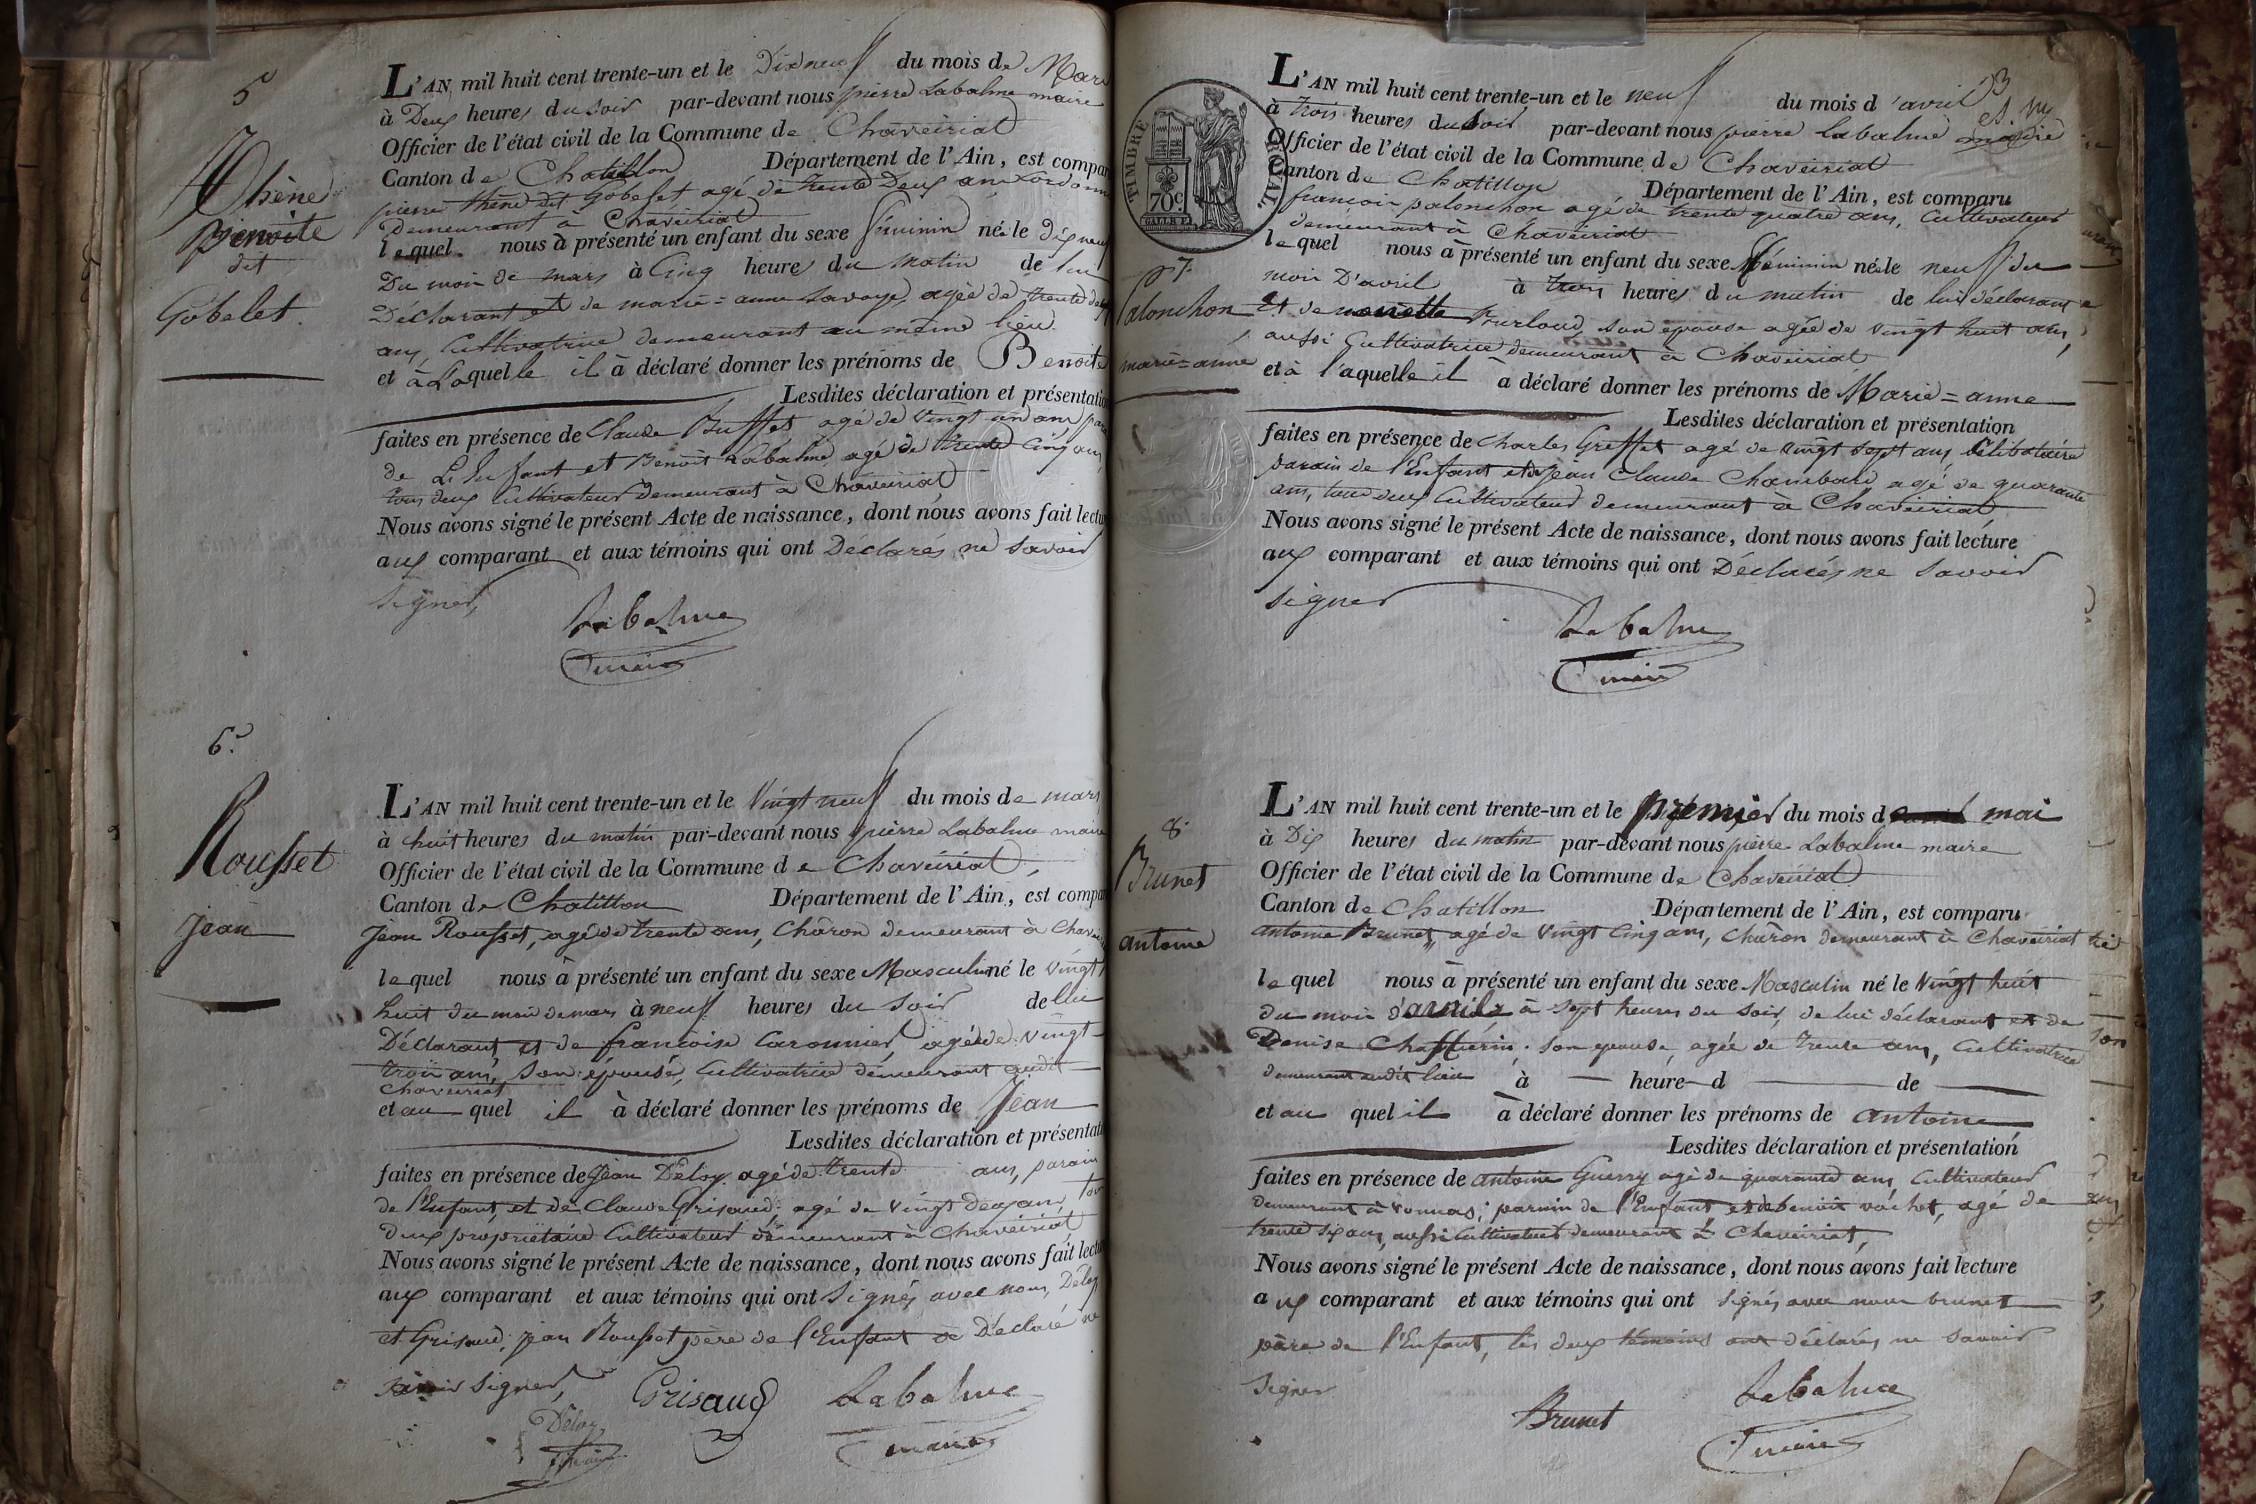 5
Thène
Benoite
dit
Gobelet.
L'AN mil huit cent trente-un et le Dixneuf du mois de Mars
à Deux heures du soir par-devant nous pierre Labalme maire
Officier de l'état civil de la Commune de Chaveiriat
Canton de Chatillon Département de l'Ain, est compar
pierre thène dit Gobelet, agé de trente Deux ans
Demeurant à Chaveiriat
lequel nous à présenté un enfant du sexe féminin né le dix neuf
Du mois de mars à Cinq heures du matin de lui
Déclarant et de marie=anne Savoye, agée de trente
ans, Cultivatrice demeurant au même lieu
et à Laquelle il à déclaré donner les prénoms de Benoite
Lesdites déclaration et présentatio
faites en présence de Claude Buffet agé de vingt un ans
de L'Enfant et Benoit Labalme, agé de trente Cinq ans,
tous deux Cultivateurs demeurant à Chaveiriat
Nous avons signé le présent Acte de naissance, dont nous avons fait lectur
aux comparant et aux témoins qui ont Déclarés ne savoir
signer,
Labalme
maire
6.
Rousset
Jean
L'AN mil huit cent trente-un et le Vingt neuf du mois de mars
à huit heures du matin par-devant nous pierre Labalme maire
Officier de l'état civil de la Commune de Chaveiriat,
Canton de Chatillon Département de l'Ain, est compar
Jean Rousset, agé de trente ans, Charon demeurant à Chavei
lequel nous à présenté un enfant du sexe Masculin né le vingt
huit du mois de mars à neuf heures du soir de lui
Déclarant et de francoise Caronnier agée de vingt
trois ans, son épouse, Cultivatrice demeurant audit
Chaveiriat
et au quel il à déclaré donner les prénoms de Jean
Lesdites déclaration et présentati
faites en présence de Jean Déloy agé de trente ans, parain
de l'Enfant, et de Claude Grisaud, agé de vingt deux ans, tous
deux propriétaire Cultivateur demeurant à Chaveiriat
Nous avons signé le présent Acte de naissance, dont nous avons fait lectu
aux comparant et aux témoins qui ont Signés avec nous, Déloy
et Grisaud, jean Rousset père de l'Enfant a Déclaré ne
savoir signer,
Grisaud
Labalme
Déloy
maire
3
TIMBRE ROYAL
70c
L'AN mil huit cent trente-un et le neuf du mois d'avril
à trois heures du soir par-devant nous pierre Labalme maire
Officier de l'état civil de la Commune de Chaveiriat
Canton de Chatillon Département de l'Ain, est comparu
francois palonchon agé de trente quatre ans, Cultivateur
demeurant à Chaveiriat
lequel nous à présenté un enfant du sexe féminin né le neuf du
mois D'avril à trois heures du matin de lui déclarant
7.
Palonchon
marie=anne
et de Burloud, son épouse agée de vingt huit ans,
aussi Cultivatrice demeurant à Chaveiriat
et à l'aquelle il a déclaré donner les prénoms de Marie=anne
Lesdites déclaration et présentation
faites en présence de Charles Greffet agé de vingt sept ans, Célibataire
parain de l'Enfant et de Jean Claude Chambard agé de quarante
ans, tous deux Cultivateurs demeurant à Chaveiriat,
Nous avons signé le présent Acte de naissance, dont nous avons fait lecture
aux comparant et aux témoins qui ont Déclarés ne savoir
signer
Labalme
maire
8.
Brunet
antoine
L'AN mil huit cent trente-un et le premier du mois d mai
à Dix heures du matin par-devant nous pierre Labalme maire
Officier de l'état civil de la Commune de Chaveiriat
Canton de Chatillon Département de l'Ain, est comparu
antoine Brunet, agé de vingt Cinq ans, Charon demeurant à Chaveiriat
lequel nous à présenté un enfant du sexe Masculin né le vingt huit
du mois d'avril à sept heures du soir, de lui déclarant et de
Denise Chaffurin, son épouse, agée de trente ans, Cultivatrice
demeurant audit lieu à heure d de
et au quel il à déclaré donner les prénoms de antoine
Lesdites déclaration et présentation
faites en présence de antoine Guerry agé de quarante ans, Cultivateur
demeurant à Vonnas, parain de l'Enfant et de benoit vochot, agé de
trente six ans, aussi Cultivateur demeurant à Chaveiriat,
Nous avons signé le présent Acte de naissance, dont nous avons fait lecture
aux comparant et aux témoins qui ont signés avec nous brunet
père de l'Enfant, les deux témoins ont déclarés ne savoir
signer
Brunet
Labalme
maire